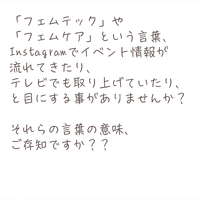 「フェムテック」や
「フェムケア」という言葉、
Instagramでイベント情報が
流れてきたり、
テレビでも取り上げていたり、
と目にする事がありませんか？
それらの言葉の意味、
ご存知ですか？？